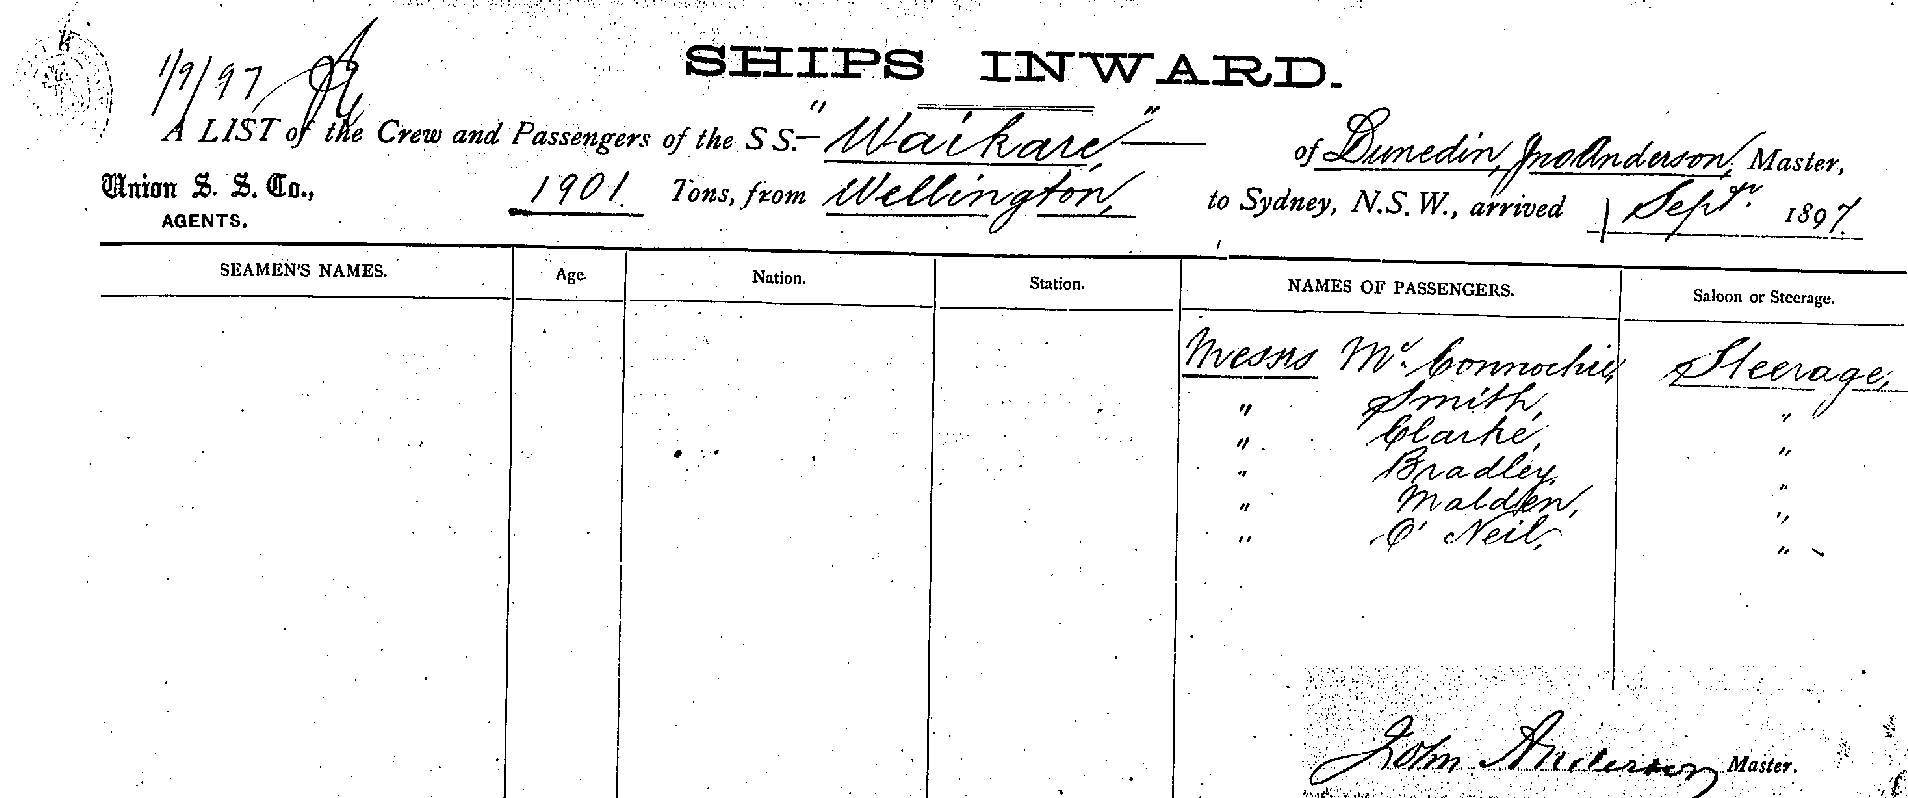 1/9/97
SHIPS INWARD.
A LIST of the Crew and Passengers of the S S.— "Waikare," — of Dunedin, Jno Anderson, Master,
Union S. S. Co., 1901. Tons, from Wellington, to Sydney, N.S.W., arrived 1 Septr. 1897.
AGENTS.
SEAMEN'S NAMES. Age. Nation. Station. NAMES OF PASSENGERS. Saloon or Steerage.
Messrs Mc. Connochie, Steerage,
" Smith, "
" Clarke, "
" Bradley, "
" Malden, "
" O' Neil, "
John Anderson Master.